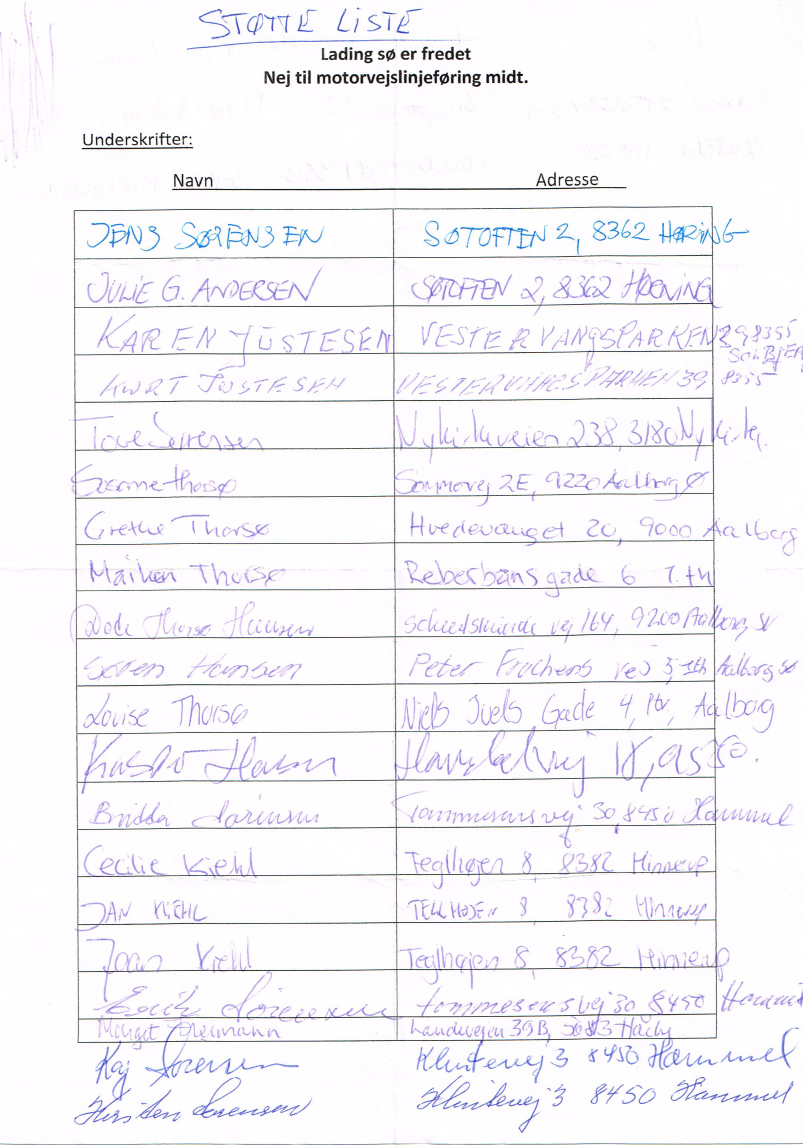 STØTTE LISTE
Lading sø er fredet
Nej til motorvejslinjeføring midt.
Underskrifter:
Navn Adresse
JENS SØRENSEN SØTOFTEN 2, 8362 HØRING
JULIE G. ANDERSEN SØTOFTEN 2, 8362 HØRNING
KAREN JUSTESEN VESTERVANGSPARKEN 29, 8355
SOLBJERG
KURT JUSTESEN VESTERVANGSPARKEN 39, 8355
Tove Sørensen Nykirkeveien 238, 3180 Nykirke.
Susanne Thorsø 2E, 9220 Aalborg Ø
Grethe Thorsø Hvedevænget 20, 9000 Aalborg
Maiken Thorsø Reberbansgade 6 1.th
Thorsø Hansen vej 164, 9200 Aalborg, SV
Søren Hansen Peter Freuchens vej 3, 1th Aalborg SØ
Louise Thorsø Niels Juels Gade 4, Aalborg
18, 9530.
Britta Sørensen Tommesensvej 30, 8450 Hammel
Cecilie Kiehl Teglhøjen 8, 8382 Hinnerup
JAN KIEHL TELHØJEN 8, 8382 Hinnerup
Joan Kiehl Teglhøjen 8, 8382 Hinnerup
Sørensen Tommesensvej 30 8450 Hammel
Margit Landevejen 39B,
Kaj Sørensen Klintevej 3 8450 Hammel
Kirsten Sørensen Klintevej 3 8450 Hammel